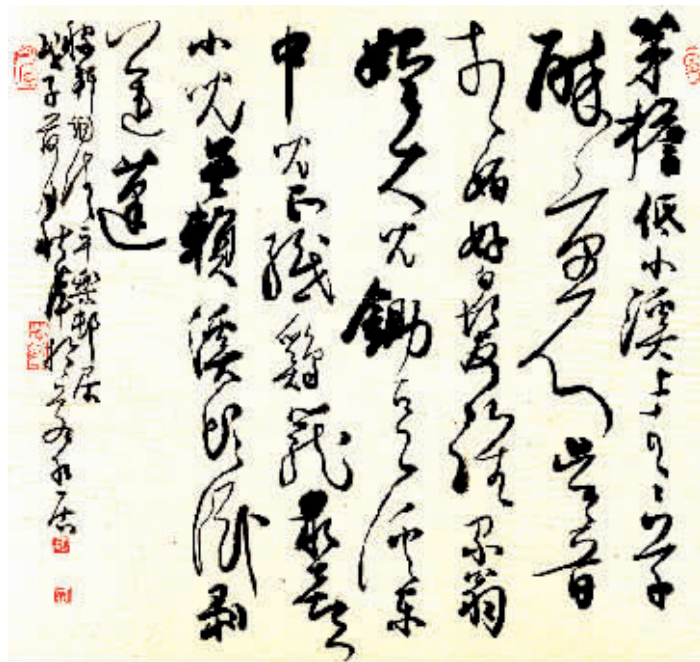 茅檐低小溪上青青草
醉里吴音
相媚好白发谁家翁
媪大儿锄豆溪东
中儿正织鸡笼最喜
小儿無賴溪头卧剥
莲蓬
稼轩词清平樂邨居
戊子荷月